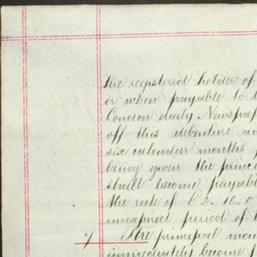 the registered holder of
or when payable to b
London daily Newspap
off this debenture an
six calendar months
being given the princ
shall become payab
the rate of £2. 10. 0
unexpired period of t
7 The principal mon
immediately become p